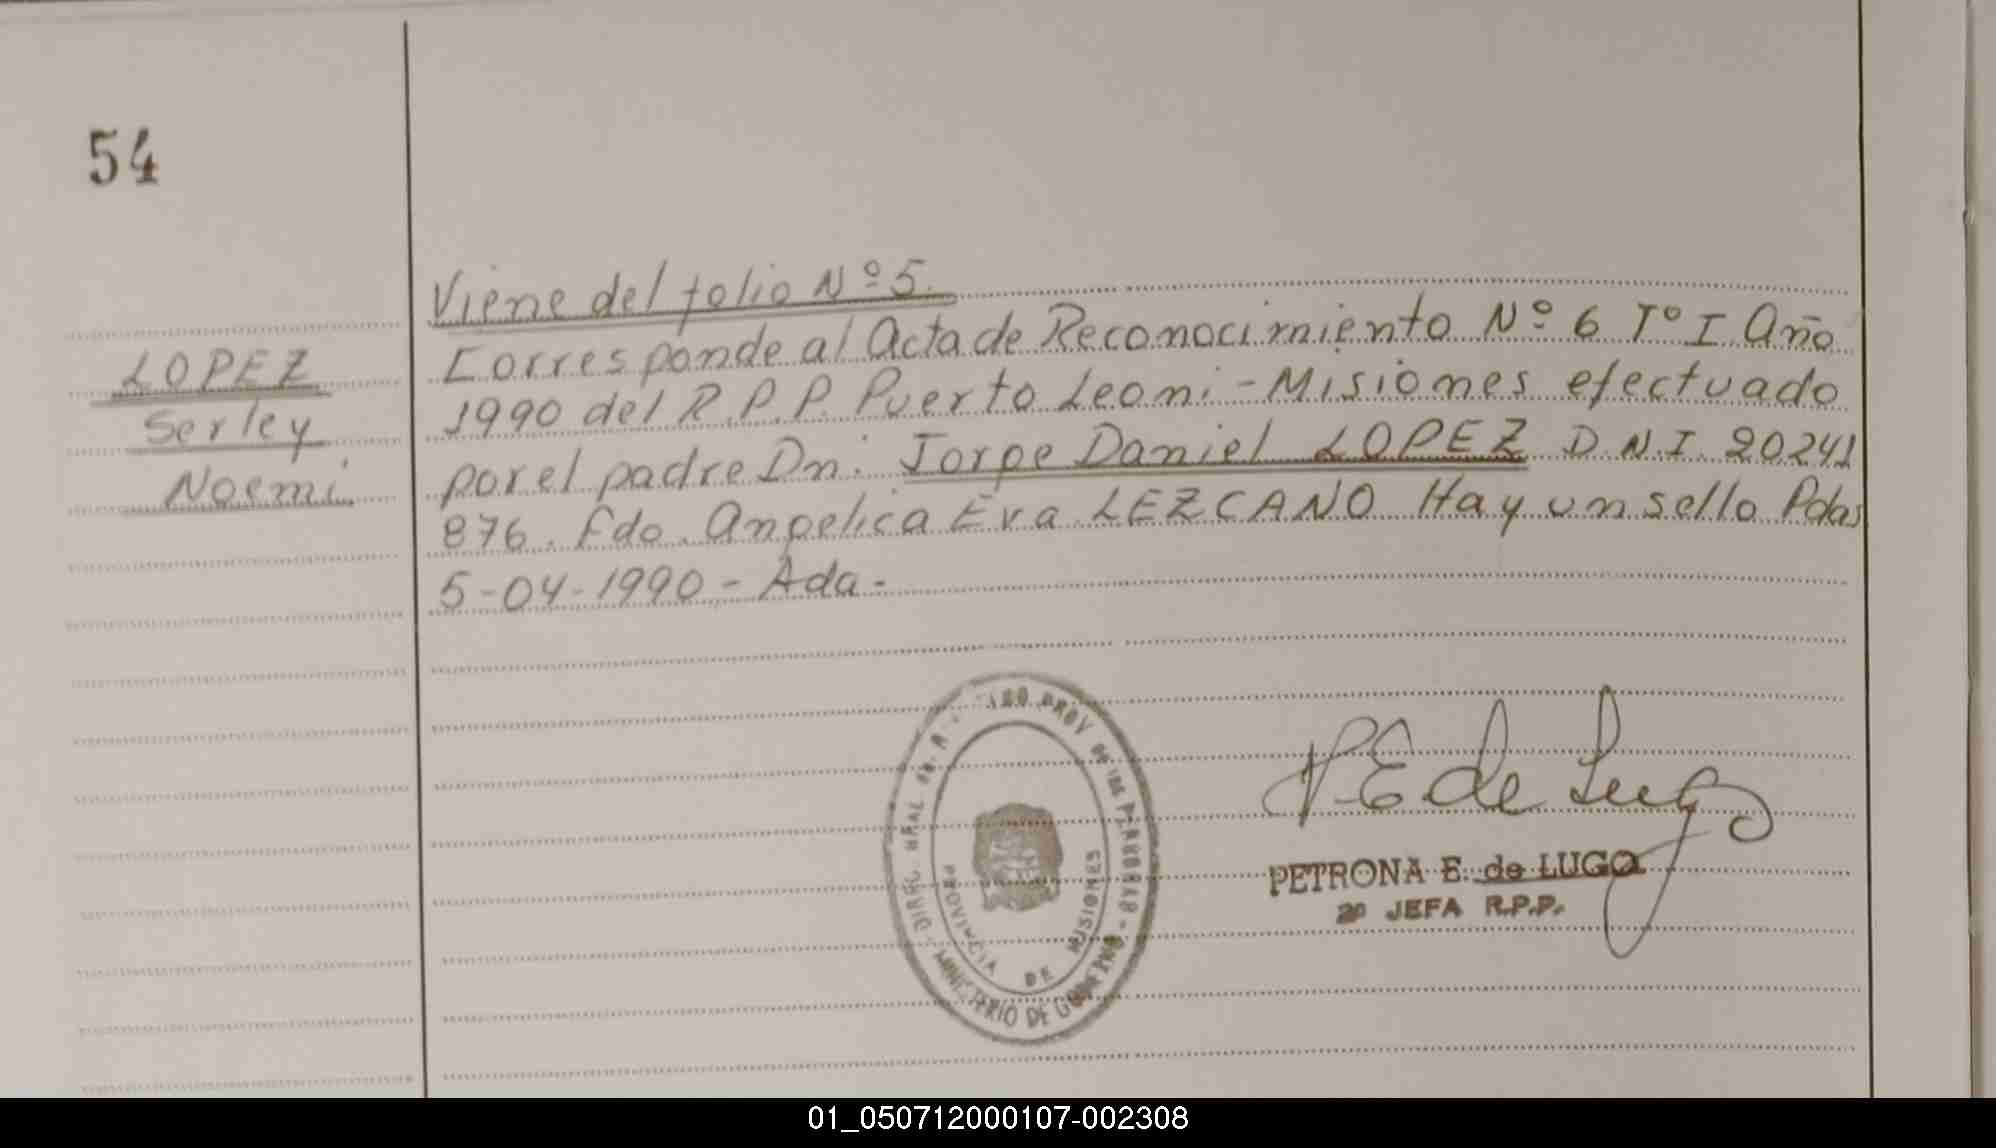 54
Viene del folio Nº 5.
LOPEZ
Serley
Noemi
Corresponde al Acta de Reconocimiento Nº 6 Tº I Año
1990 del R.P.P. Puerto Leoni - Misiones efectuado
por el padre Dn. Jorge Daniel LOPEZ D.N.I. 20241
876. Fdo. Angelica Eva LEZCANO Hay un sello Pdas
5-04-1990 - Ada -
PROV DE LAS PERSONAS
PROVINCIA DE MISIONES
MINISTERIO DE GOBIERNO
P E de Lugo
PETRONA E. de LUGO
2º JEFA R.P.P.
01_050712000107-002308